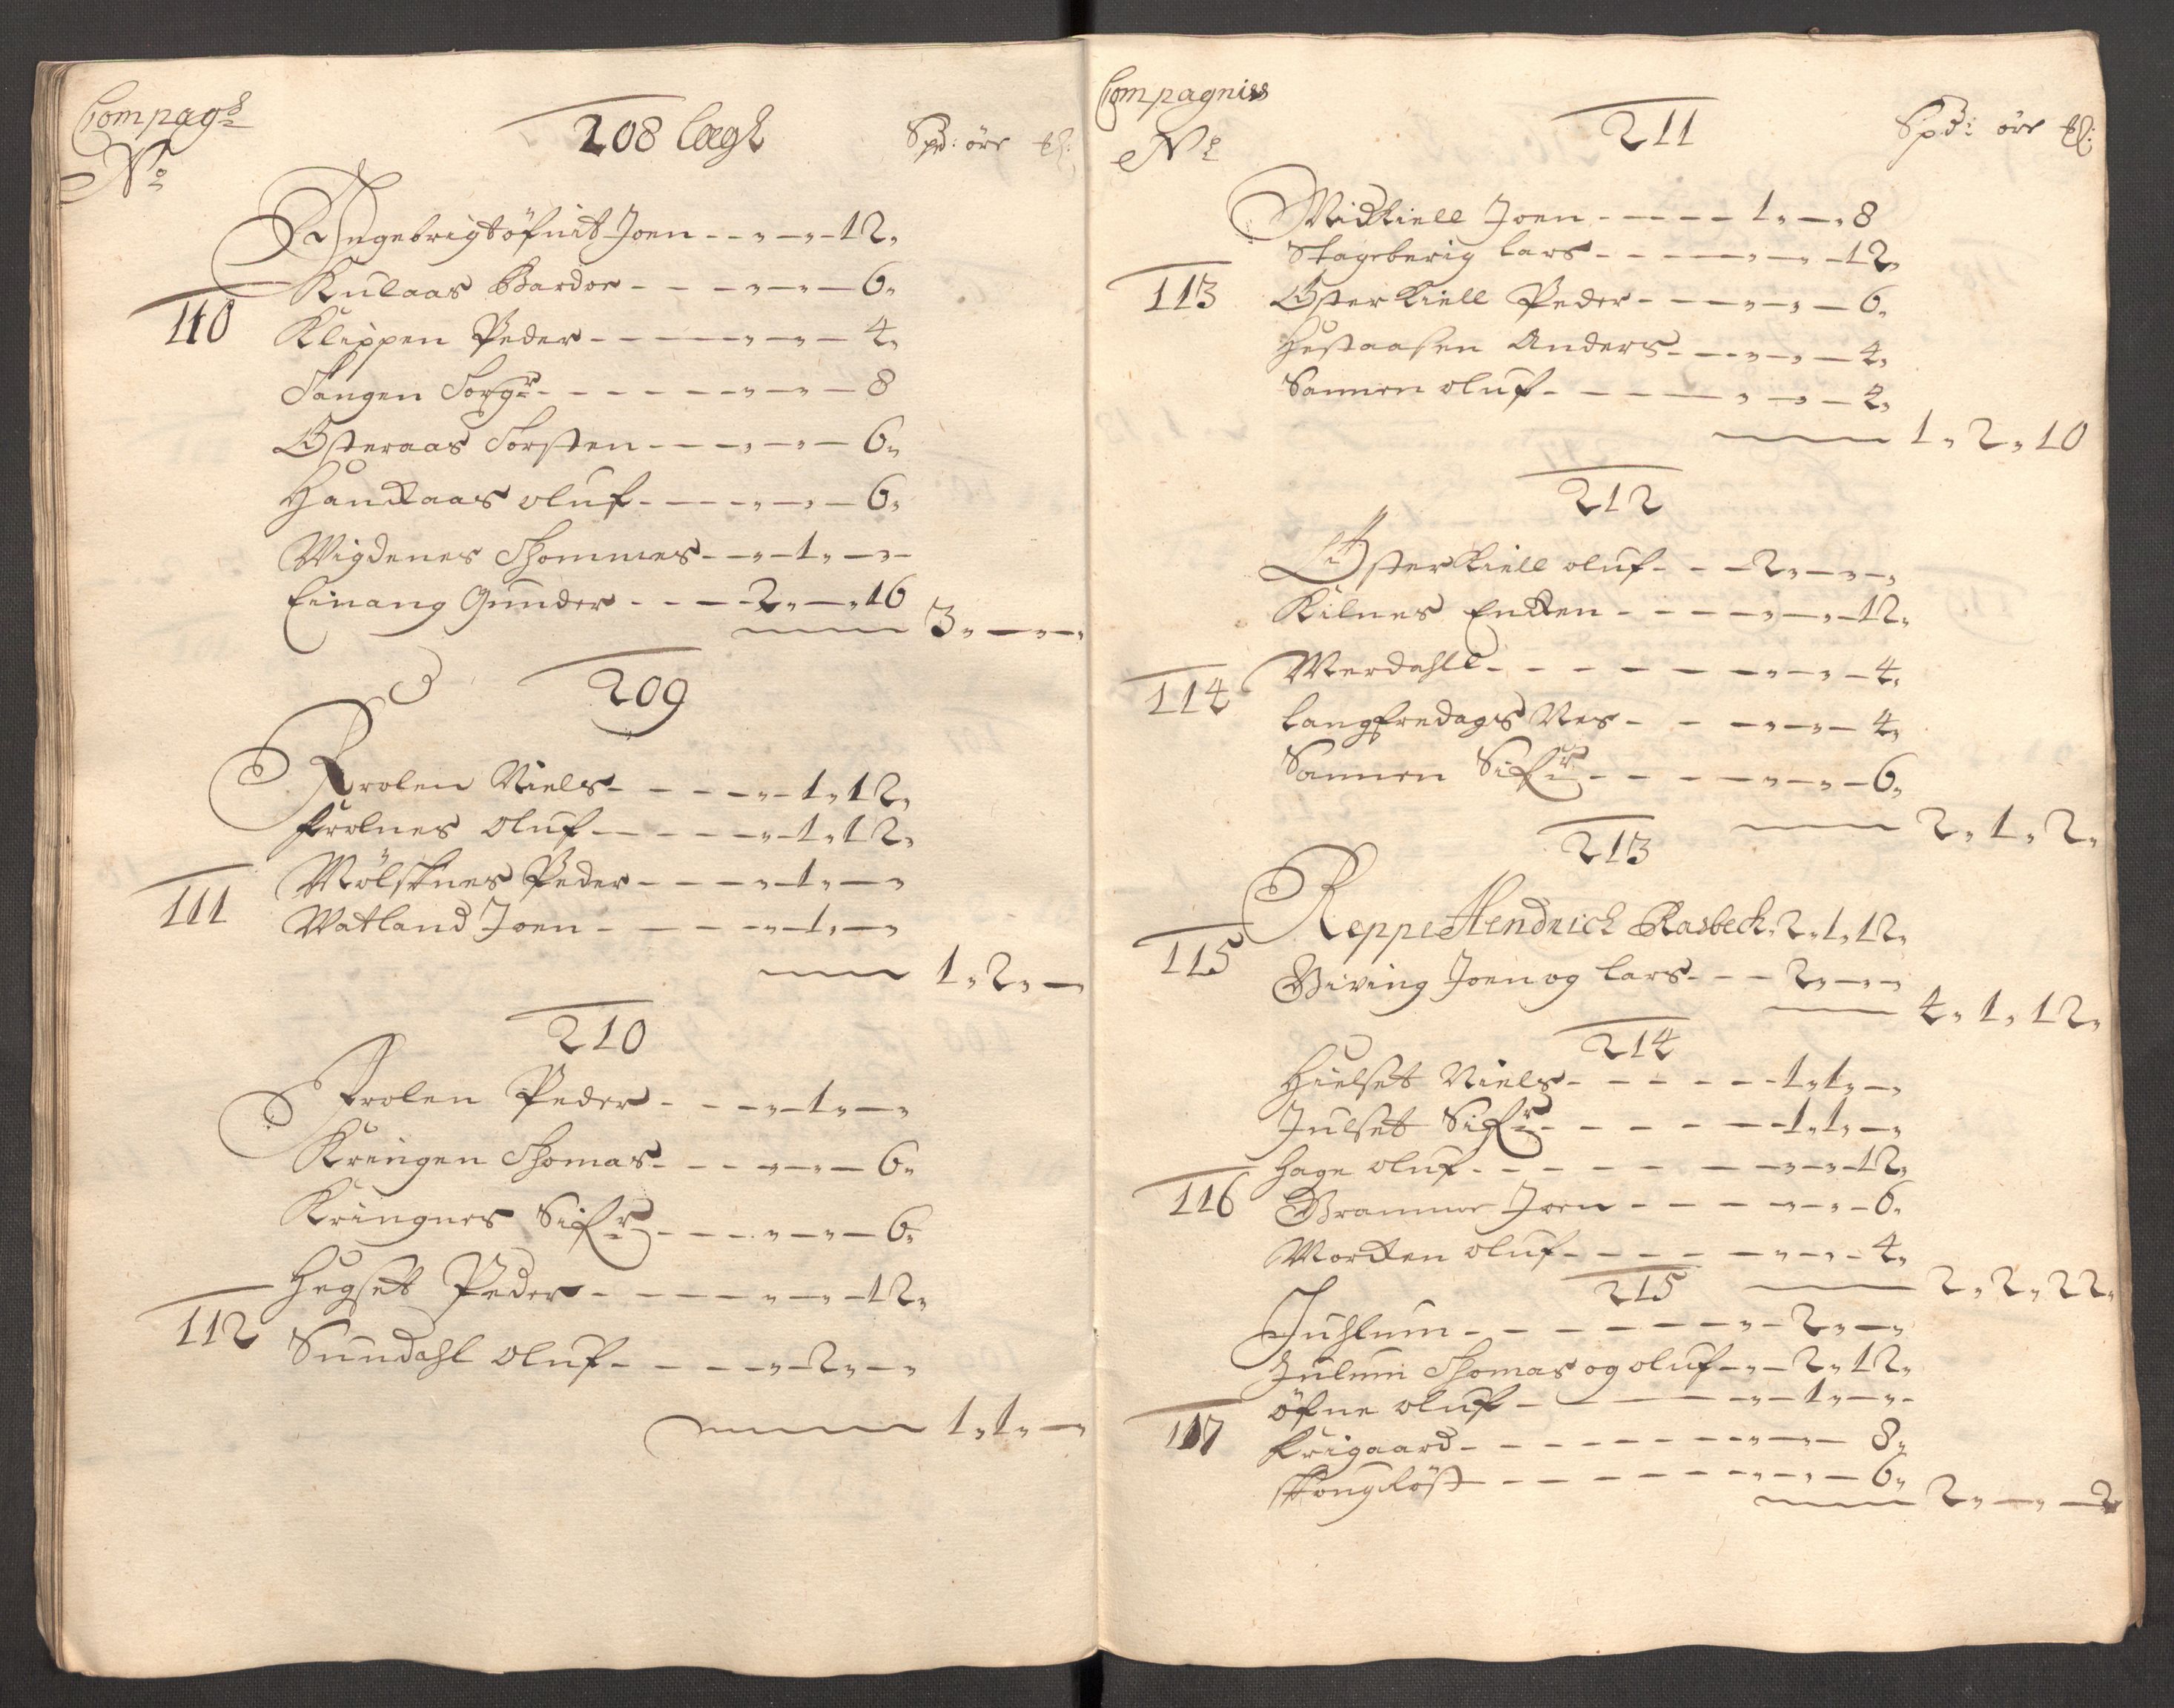 Compag:
No
208 Lægh
Spd: ørt
Ingebrigtöfnit Joen - - " - " - 12 "
Kulaas Bardor - - - " - " - 6 "
110
Klippen Peder - - - - " - " - 4 "
Tangen Torgr - - - - - " - " - 8
Østeraas Torsten - - - " - " - 6 "
Handtaas oluf - - - " - " - 6 "
Wigdenes Thommes - - " - 1 " - " -
Einang Gunder - - - 2 " - " 16
3 " - " - "
209
Frolen Niels - - - - " - 1 " 12 "
Frolnes oluf - - - - " - 1 " 12 "
111
Mölsknes Peder - - - - " - 1 " - "
Watland Joen - - - - " - 1 " - "
1 " 2 " -
210
Frolen Peder - - - " - 1 " - "
Kringen Thomas - - - " - " - 6 "
Kringnes Sifr - - - - " - " - 6 "
Hegset Peder - - - - " - " - 12 "
112
Sundahl oluf - - - - " - 2 " - "
1 " 1 " -
Compagnies
No
211
Spd: ørt
Midkiell Joen - - - - 1 " - " 8
Stageberig Lars - - - - " - " - 12 "
113
Østerkiell Peder - - - " - " - 6 "
Hestaasen Anders - - - " - " - 4 "
Sannen oluf - - - - " - " - 4 "
1 " 2 " 10
212
Østerkiell oluf - - - 2 " - " - "
Kilnes Enken - - - - " - " - 12 "
114
Werdahll - - - - - " - " - 4 "
Langfredags Nes - - - " - " - 4 "
Sannen Sifr - - - - " - " - 6 "
2 " 1 " 2 "
213
115
Reppe Hendrich Rasbech " 2 " 1 " 12 "
Viving Joen og Lars - - - 2 " - " - "
4 " 1 " 12 "
214
Hielset Niels - - - - - 1 " 1 " - "
Julset Sifr - - - - - 1 " 1 " - "
Hage oluf - - - - - " - " - 12 "
116
Brannne Joen - - - - " - " - 6 "
Morken oluf - - - - " - " - 4 "
2 " 2 " 22 "
215
Juhlum - - - - - " - 2 " - "
Julum Thomas og oluf - " - 2 " 12 "
öfne oluf - - - - " - 1 " - " -
117
Krigaard - - - - - " - " - 8 "
- - - - - " - " - 6 "
2 " - " - 2